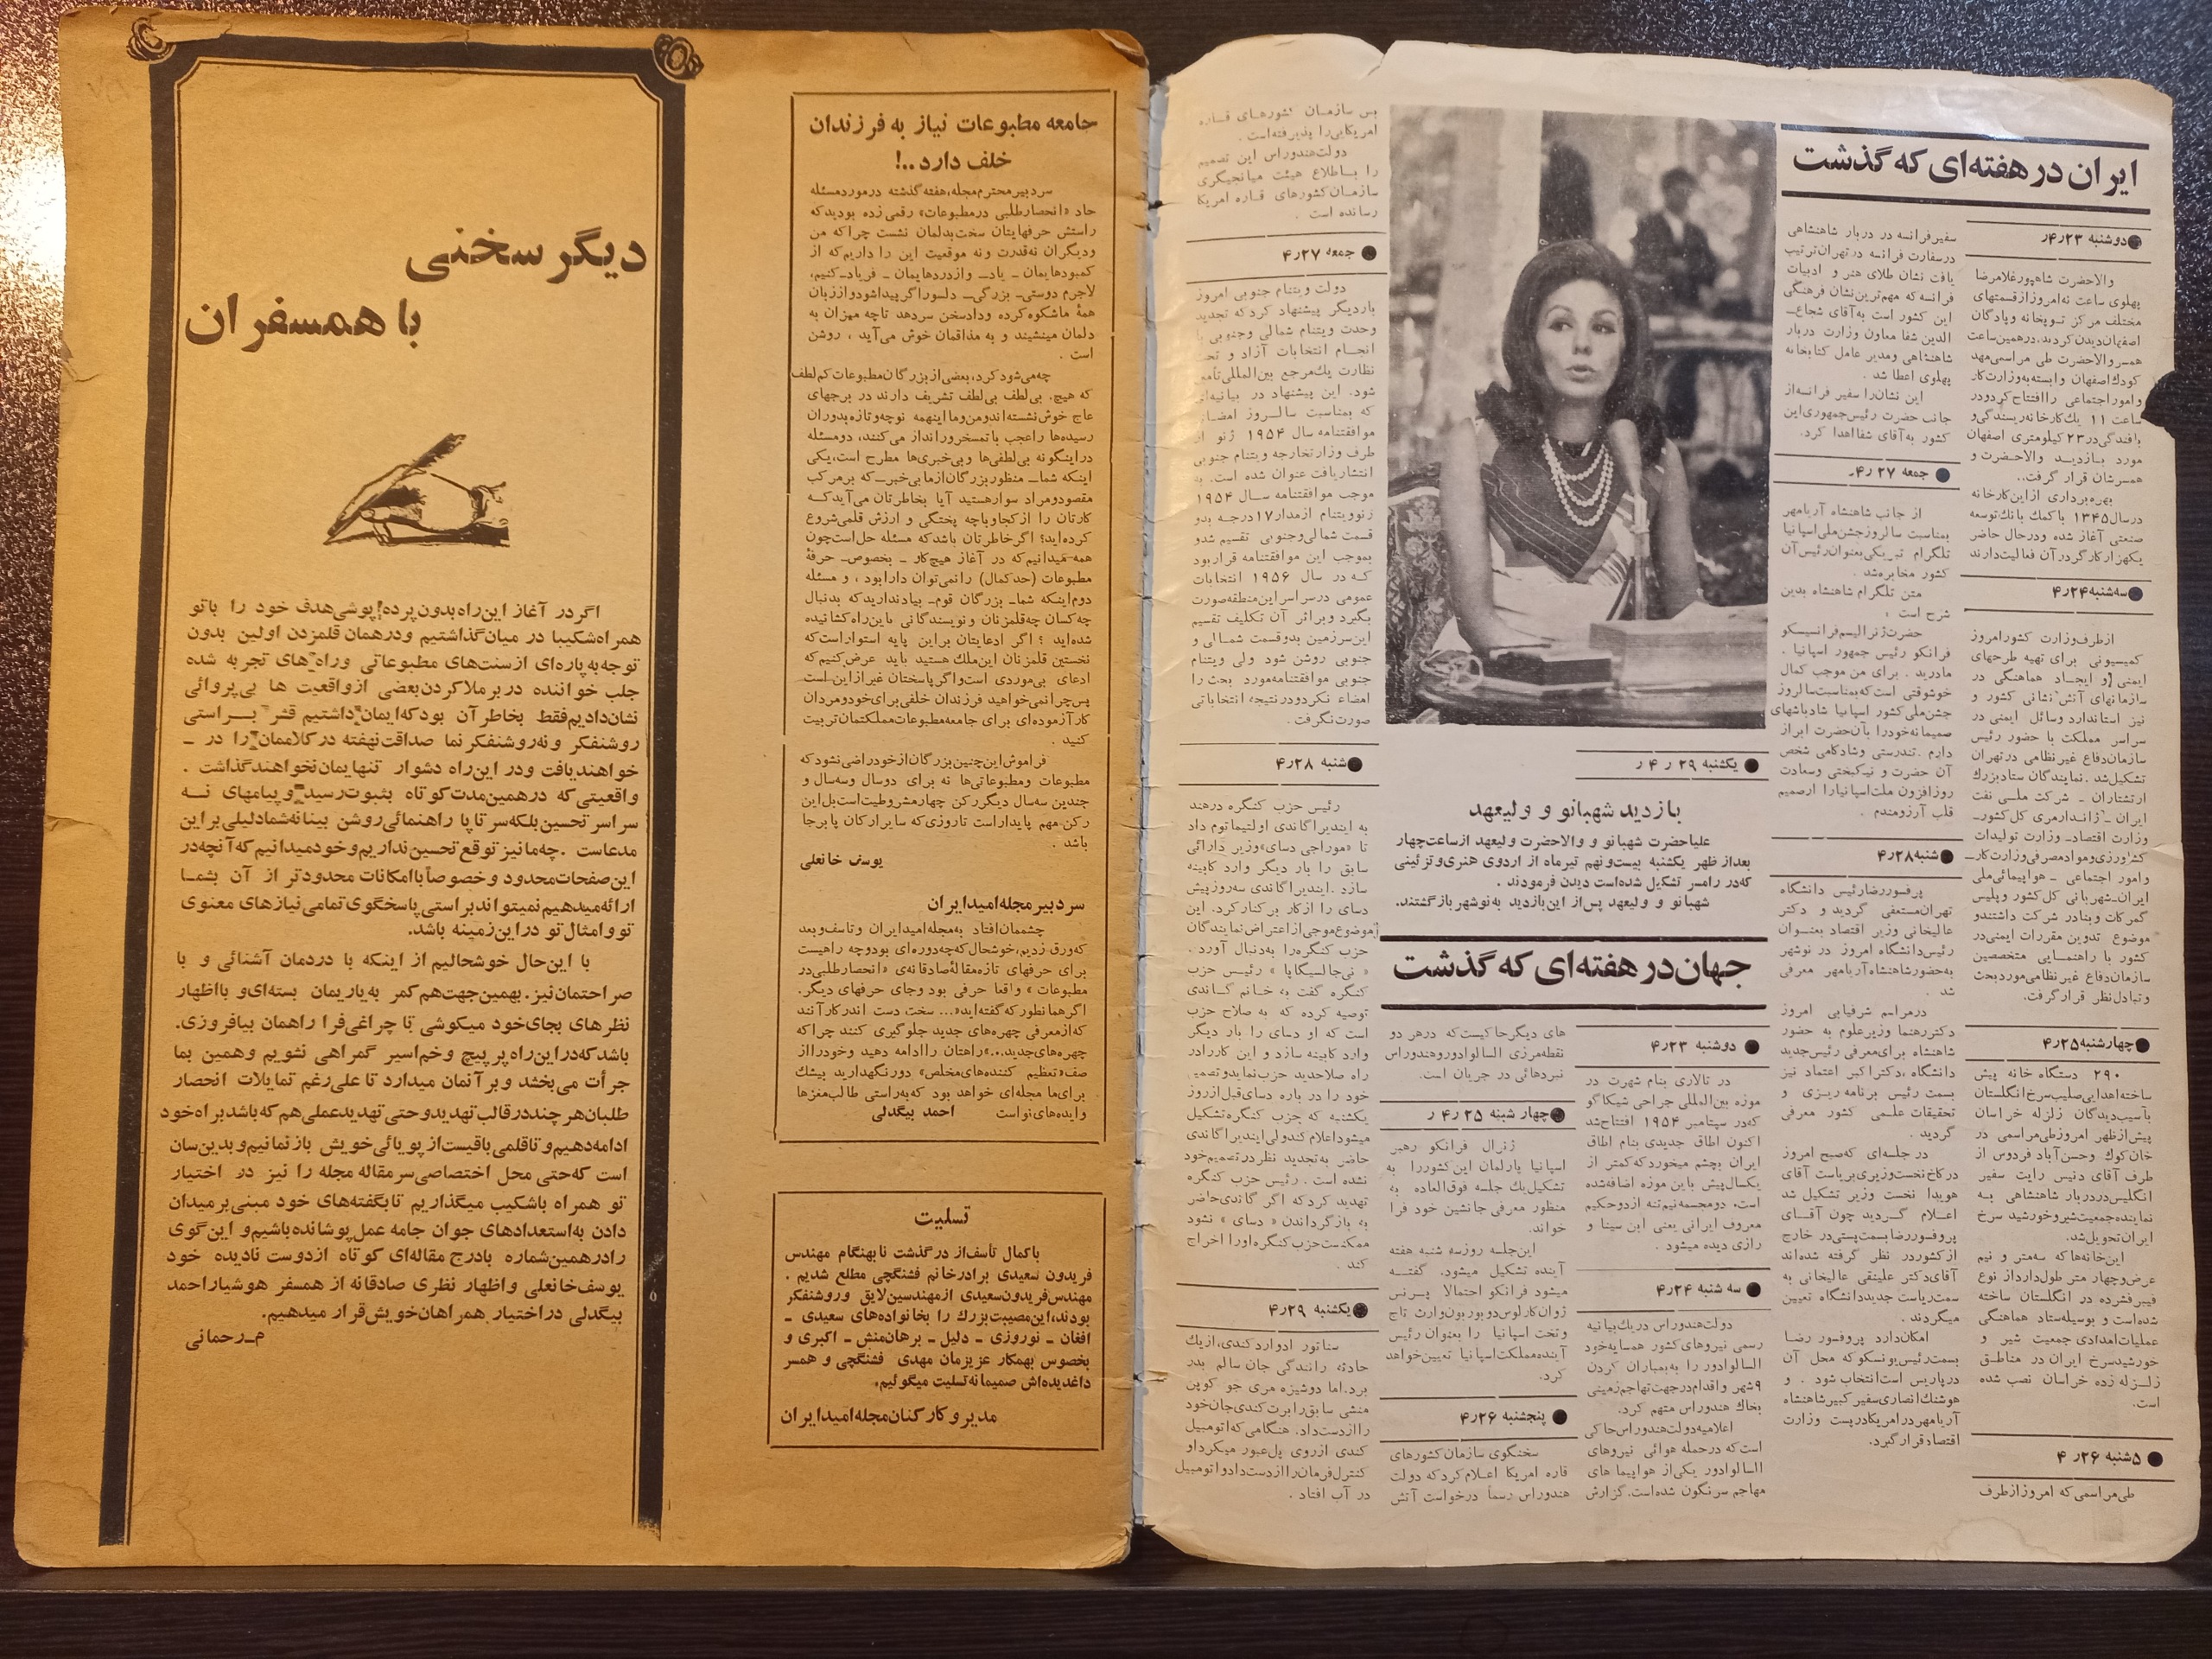 ایران در هفته‌ای که گذشت
دوشنبه ۲۳ر۴
والاحضرت شاهپور غلامرضا
پهلوی ساعت نه امروز از قسمتهای
مختلف مرکز توپخانه و پادگان
اصفهان دیدن کردید، در همین ساعت
همسر والاحضرت طی مراسمی مهد
کودك اصفهان وابسته به وزارت کار
و امور اجتماعی را افتتاح کرد و در
ساعت ۱۱ يك کارخانه ریسندگی و
بافندگی در ۲۳ کیلومتری اصفهان
مورد بازدید والاحضرت و
همسرشان قرار گرفت..
بهره‌برداری از این کارخانه
در سال ۱۳۴۵ با کمك بانك توسعه
صنعتی آغاز شده و در حال حاضر
یکهزار کارگر در آن فعالیت دارند
سه‌شنبه ۲۴ر۴
از طرف وزارت کشور امروز
کمیسیونی برای تهیه طرحهای
ایمنی و ایجاد هماهنگی در
سازمانهای آتش نشانی کشور و
نیز استاندارد وسائل ایمنی در
سراسر مملکت با حضور رئیس
سازمان دفاع غیر نظامی در تهران
تشکیل شد. نمایندگان ستاد بزرك
ارتشتاران ـ شرکت ملی نفت
ایران ـ ژاندارمری کل کشورـ
وزارت اقتصادـ وزارت تولیدات
کشاورزی و مواد مصرفی وزارت کارـ
و امور اجتماعی ـ هواپیمائی ملی
ایران ـ شهربانی کل کشور و پلیس
گمرکات و بنادر شرکت داشتند و
موضوع تدوین مقررات ایمنی در
کشور با راهنمایی متخصصین
سازمان دفاع غیر نظامی مورد بحث
و تبادل نظر قرار گرفت.
چهارشنبه ۲۵ر۴
۲۹۰ دستگاه خانه پیش
ساخته اهدایی صلیب سرخ انگلستان
بآسیب دیدگان زلزله خراسان
پیش از ظهر امروز طی مراسمی در
خان کوك و حسن آباد فردوس از
طرف آقای دنیس رایت سفیر
انگلیس در دربار شاهنشاهی به
نماینده جمعیت شیر و خورشید سرخ
ایران تحویل شد.
این خانه‌ها که سه متر و نیم
عرض و چهار متر طول دارد از نوع
فیبر فشرده در انگلستان ساخته
شده است و بوسیله ستاد هماهنگی
عملیات امدادی جمعیت شیر و
خورشید سرخ ایران در مناطق
زلزله زده خراسان نصب شده
است.
۵شنبه ۲۶ر ۴
طی مراسمی که امروز از طرف
سفیر فرانسه در دربار شاهنشاهی
در سفارت فرانسه در تهران ترتیب
یافت نشان طلای هنر و ادبیات
فرانسه که مهم‌ترین نشان فرهنگی
این کشور است به آقای شجاع‌ـ
الدین شفا معاون وزارت دربار
شاهنشاهی و مدیر عامل کتابخانه
پهلوی اعطا شد .
این نشان را سفیر فرانسه از
جانب حضرت رئیس جمهوری این
کشور به آقای شفا اهدا کرد.
جمعه ۲۷ ر۴ـ
از جانب شاهنشاه آریامهر
بمناسبت سالروز جشن ملی اسپانیا
تلگرام تبریکی بعنوان رئیس آن
کشور مخابره شد .
متن تلگرام شاهنشاه بدین
شرح است :
حضرت ژنرالیسم فرانسیسکو
فرانکو رئیس جمهور اسپانیا .
مادرید . برای من موجب کمال
خوشوقتی است که بمناسبت سالروز
جشن ملی کشور اسپانیا شادباشهای
صمیمانه خود را بآن حضرت ابراز
دارم .تندرستی و شادکامی شخص
آن حضرت و نیکبختی و سعادت
روزافزون ملت اسپانیا را از صمیم
قلب آرزومندم .
شنبه ۲۸ر۴
پرفسور رضا رئیس دانشگاه
تهران مستعفی گردید و دکتر
عالیخانی وزیر اقتصاد بعنوان
رئیس دانشگاه امروز در نوشهر
به حضور شاهنشاه آریامهر معرفی
شد .
در مراسم شرفیابی امروز
دکتر رهنما وزیر علوم به حضور
شاهنشاه برای معرفی رئیس جدید
دانشگاه ،دکتر اکبر اعتماد نیز
بسمت رئیس برنامه ریزی و
تحقیقات علمی کشور معرفی
گردید .
در جلسه‌ای که صبح امروز
در کاخ نخست وزیری بریاست آقای
هویدا نخست وزیر تشکیل شد
اعلام گردید چون آقای
پروفسور رضا بسمت پستی در خارج
از کشور در نظر گرفته شده‌اند
آقای دکتر علینقی عالیخانی به
سمت ریاست جدید دانشگاه تعیین
میگردند .
امکان دارد پروفسور رضا
بسمت رئیس یونسکو که محل آن
در پاریس است انتخاب شود . و
هوشنك انصاری سفیر کبیر شاهنشاه
آریامهر در امریکا در پست وزارت
اقتصاد قرار گیرد.
یکشنبه ۲۹ ر ۴ ر
بازدید شهبانو و ولیعهد
علیاحضرت شهبانو و والاحضرت ولیعهد از ساعت چهار
بعد از ظهر یکشنبه بیست و نهم تیرماه از اردوی هنری و تزئینی
که در رامسر تشکیل شده است دیدن فرمودند .
شهبانو و ولیعهد پس از این بازدید به نوشهر بازگشتند.
جهان در هفته‌ای که گذشت
دوشنبه ۲۳ر۴
در تالاری بنام شهرت در
موزه بین‌المللی جراحی شیکاگو
که در سپتامبر ۱۹۵۴ افتتاح شد
اکنون اطاق جدیدی بنام اطاق
ایران بچشم میخورد که کمتر از
یکسال پیش باین موزه اضافه شده
است. دو مجسمه نیم تنه از دو حکیم
معروف ایرانی یعنی ابن سینا و
رازی دیده میشود .
سه شنبه ۲۴ر۴
دولت هندوراس در يك بیانیه
رسمی نیروهای کشور همسایه خود
السالوادور را به بمباران کردن
۹ شهر و اقدام در جهت تهاجم زمینی
بخاك هندوراس متهم کرد.
اعلامیه دولت هندوراس حاکی
است که در حمله هوائی نیروهای
السالوادور یکی از هواپیما های
مهاجم سرنگون شده است. گزارش
های دیگر حاکیست که در هر دو
نقطه مرزی السالوادور و هندوراس
نبردهائی در جریان است.
چهار شنبه ۲۵ ر۴ ر
ژنرال فرانکو رهبر
اسپانیا پارلمان این کشور را به
تشکیل يك جلسه فوق العاده به
منظور معرفی جانشین خود فرا
خواند.
این جلسه روز سه شنبه هفته
آینده تشکیل میشود. گفته
میشود فرانکو احتمالا پرنس
ژوان کارلوس دوبوربون وارث تاج
و تخت اسپانیا را بعنوان رئیس
آینده مملکت اسپانیا تعیین خواهد
کرد.
پنجشنبه ۲۶ر۴
سخنگوی سازمان کشورهای
قاره امریکا اعلام کرد که دولت
هندوراس رسما درخواست آتش
بس سازمان کشورهای قاره
امریکایی را پذیرفته است .
دولت هندوراس این تصمیم
را باطلاع هیئت میانجیگری
سازمان کشورهای قاره امریکا
رسانده است .
جمعه ۲۷ر۴
دولت ویتنام جنوبی امروز
بار دیگر پیشنهاد کرد که تجدید
وحدت ویتنام شمالی و جنوبی با
انجام انتخابات آزاد و تحت
نظارت يك مرجع بین‌المللی تأمین
شود. این پیشنهاد در بیانیه‌ای
که بمناسبت سالروز امضای
موافقتنامه سال ۱۹۵۴ ژنو از
طرف وزارتخارجه ویتنام جنوبی
انتشار یافت عنوان شده است. به
موجب موافقتنامه سال ۱۹۵۴
ژنو ویتنام از مدار ۱۷ درجه بدو
قسمت شمالی و جنوبی تقسیم شد و
بموجب این موافقتنامه قرار بود
که در سال ۱۹۵۶ انتخابات
عمومی در سراسر این منطقه صورت
بگیرد و براثر آن تکلیف تقسیم
این سرزمین بدو قسمت شمالی و
جنوبی روشن شود ولی ویتنام
جنوبی موافقتنامه مورد بحث را
امضاء نکرد و در نتیجه انتخاباتی
صورت نگرفت.
شنبه ۲۸ر۴
رئیس حزب کنگره در هند
به ایندیرا گاندی اولتیماتوم داد
تا «مورارجی دسای» وزیر دارائی
سابق را بار دیگر وارد کابینه
سازد .ایندیرا گاندی سه روز پیش
دسای را از کار برکنار کرد. این
موضوع موجی از اعتراض نمایندگان
حزب کنگره را به دنبال آورد .
« نی جالسیگاپا » رئیس حزب
کنگره گفت به خانم گاندی
توصیه کرده که به صلاح حزب
است که او دسای را بار دیگر
وارد کابینه سازد و این کار را در
راه صلاحدید حزب نماید و تصمیم
خود را در باره دسای قبل از روز
یکشنبه که حزب کنگره تشکیل
میشود اعلام کند ولی ایندیرا گاندی
حاضر به تجدید نظر در تصمیم خود
نشده است . رئیس حزب کنگره
تهدید کرد که اگر گاندی حاضر
به بازگرداندن « دسای » نشود
ممکنست حزب کنگره او را اخراج
کند .
یکشنبه ۲۹ر۴
سناتور ادوارد کندی، از يك
حادثه رانندگی جان سالم بدر
برد. اما دوشیزه مری جو کوپن
منشی سابق رابرت کندی جان خود
را از دست داد. هنگامی که اتومبیل
کندی از روی پل عبور میکرد او
کنترل فرمان را از دست داد و اتومبیل
در آب افتاد .
جامعه مطبوعات نیاز به فرزندان
خلف دارد ..!
سردبیر محترم مجله، هفته گذشته در مورد مسئله
حاد «انحصار طلبی در مطبوعات» رقمی زده بودید که
راستش حرفهایتان سخت بدلمان نشست چرا که من
و دیگران نه قدرت و نه موقعیت این را داریم که از
کمبودهایمان ـ یاد ـ و از دردهایمان ـ فریاد ـ کنیم،
لاجرم دوستی ـ بزرگی ـ دلسوز اگر پیدا شود و از زبان
همهٔ ما شکوه کرده و داد سخن سر دهد تا چه میزان به
دلمان مینشیند و به مذاقمان خوش می‌آید ، روشن
است .
چه می‌شود کرد، بعضی از بزرگان مطبوعات کم لطف
که هیچ. بی لطف بی لطف تشریف دارند در برجهای
عاج خوش نشسته‌اند و من و ما اینهمه نوچه و تازه بدوران
رسیده‌ها را عجب با تمسخر ورانداز می‌کنند، دو مسئله
در اینگونه بی لطفی‌ها و بی خبری‌ها مطرح است، یکی
اینکه شما ـ منظور بزرگان از ما بی‌خبر ـ که بر مرکب
مقصود و مراد سوار هستید آیا بخاطرتان می‌آید که
کارتان را از کجا و با چه پختگی و ارزش قلمی شروع
کرده‌اید؟ اگر خاطرتان باشد که مسئله حل است چون
همه میدانیم که در آغاز هیچ کار ـ بخصوص ـ حرفهٔ
مطبوعات (حد کمال) را نمی‌توان دارا بود ، و مسئله
دوم اینکه شما ـ بزرگان قوم ـ بیاد ندارید که بدنبال
چه کسان چه قلمزنان و نویسندگانی باین راه کشانیده
شده‌اید ؟ اگر ادعایتان براین پایه استوار است که
نخستین قلمزنان این ملك هستید باید عرض کنیم که
ادعای بی‌موردی است و اگر پاسختان غیر از این است
پس چرا نمی‌خواهید فرزندان خلفی برای خود و مردان
کارآزموده‌ای برای جامعه مطبوعات مملکتمان تربیت
کنید .
فراموش این چنین بزرگان از خود راضی نشود که
مطبوعات و مطبوعاتی‌ها نه برای دو سال و سه سال و
چندین سه سال دیگر رکن چهار مشروطیت است بل این
رکن مهم پایدار است تا روزی که سایر ارکان پا برجا
باشد .
یوسف خانعلی
سردبیر مجله امید ایران
چشممان افتاد به مجله امید ایران و تاسف و بعد
که ورق زدیم، خوشحال که چه دوره‌ای بود و چه راهیست
برای حرفهای تازه مقاله صادقانه‌ی «انحصار طلبی در
مطبوعات » واقعا حرفی بود و جای حرفهای دیگر.
اگر همانطور که گفته‌اید«... سخت دست اندرکارآنند
که از معرفی چهره‌های جدید جلوگیری کنند چرا که
چهره‌های جدید...» راهتان را ادامه دهید و خود را از
صف «تعظیم کننده‌های مخلص» دور نگهدارید بیشك
برای ما مجله‌ای خواهد بود که به راستی طالب مغزها
و ایده‌های نو است احمد بیگدلی
تسلیت
با کمال تأسف از درگذشت نابهنگام مهندس
فریدون سعیدی برادر خانم فشنگچی مطلع شدیم .
مهندس فریدون سعیدی از مهندسین لایق و روشنفکر
بودند، این مصیبت بزرك را بخانواده‌های سعیدی ـ
افغان ـ نوروزی ـ دلیل ـ برهان‌منش ـ اکبری و
بخصوص بهمکار عزیزمان مهدی فشنگچی و همسر
داغدیده‌اش صمیمانه تسلیت میگوئیم.
مدیر و کارکنان مجله امید ایران
دیگر سخنی
با همسفران
اگر در آغاز این راه بدون پرده پوشی هدف خود را با تو
همراه شکیبا در میان گذاشتیم و در همان قلمزدن اولین بدون
توجه به پاره‌ای از سنت‌های مطبوعاتی و راه های تجربه شده
جلب خواننده در برملا کردن بعضی از واقعیت ها بی پروائی
نشان دادیم فقط بخاطر آن بود که ایمان داشتیم قشر براستی
روشنفکر و نه روشنفکر نما صداقت نهفته در کلاممان را در ـ
خواهند یافت و در این راه دشوار تنهایمان نخواهند گذاشت .
واقعیتی که در همین مدت کوتاه بثبوت رسید و پیامهای نه
سراسر تحسین بلکه سر تا پا راهنمائی روشن بینانه شما دلیلی بر این
مدعاست .چه ما نیز توقع تحسین نداریم و خود میدانیم که آنچه در
این صفحات محدود و خصوصاً با امکانات محدودتر از آن بشما
ارائه میدهیم نمیتواند براستی پاسخگوی تمامی نیازهای معنوی
تو و امثال تو در این زمینه باشد.
با این حال خوشحالیم از اینکه با دردمان آشنائی و با
صراحتمان نیز. بهمین جهت هم کمر به یاریمان بسته‌ای و با اظهار
نظرهای بجای خود میکوشی تا چراغی فرا راهمان بیافروزی.
باشد که در این راه پر پیچ و خم اسیر گمراهی نشویم و همین بما
جرأت می بخشد و برآنمان میدارد تا علی‌رغم تمایلات انحصار
طلبان هر چند در قالب تهدید و حتی تهدید عملی هم که باشد براه خود
ادامه دهیم و تا قلمی باقیست از پویائی خویش باز نمانیم و بدین سان
است که حتی محل اختصاصی سرمقاله مجله را نیز در اختیار
تو همراه باشکیب میگذاریم تا بگفته‌های خود مبنی بر میدان
دادن به استعدادهای جوان جامه عمل پوشانده باشیم و این گوی
را در همین شماره با درج مقاله‌ای کوتاه از دوست نادیده خود
یوسف خانعلی و اظهار نظری صادقانه از همسفر هوشیار احمد
بیگدلی در اختیار همراهان خویش قرار میدهیم.
م ـ رحمانی
۵